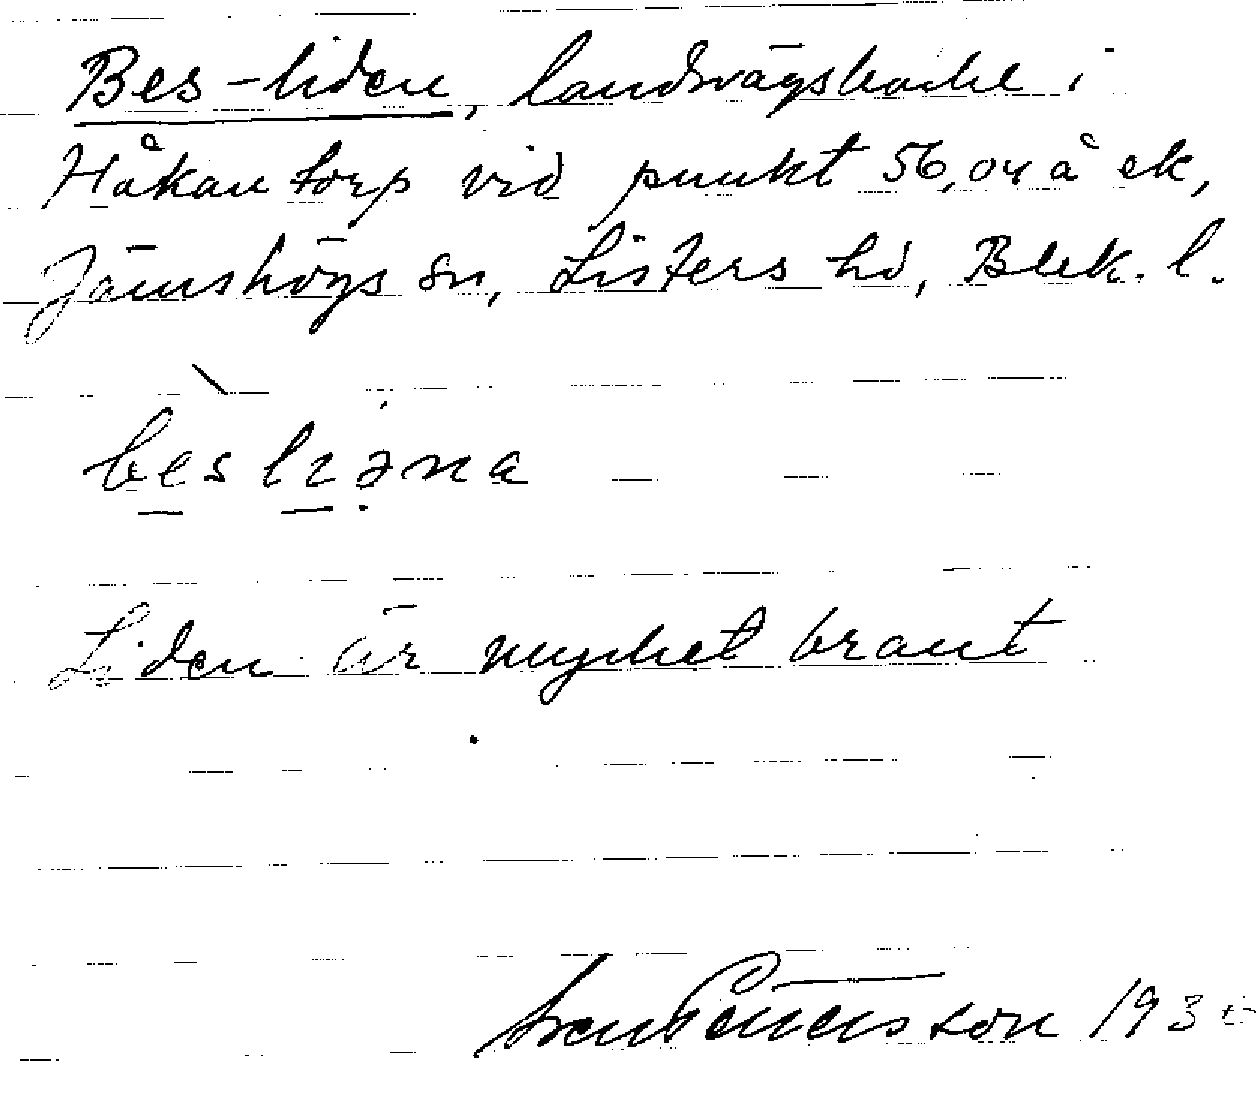 Bes-liden, landsvägsbacke i
Håkantorp vid punkt 56,04 å ek,
Jämshögs sn, Listers hd, Blek. l.
bes liəna
Liden är mycket brant
1930